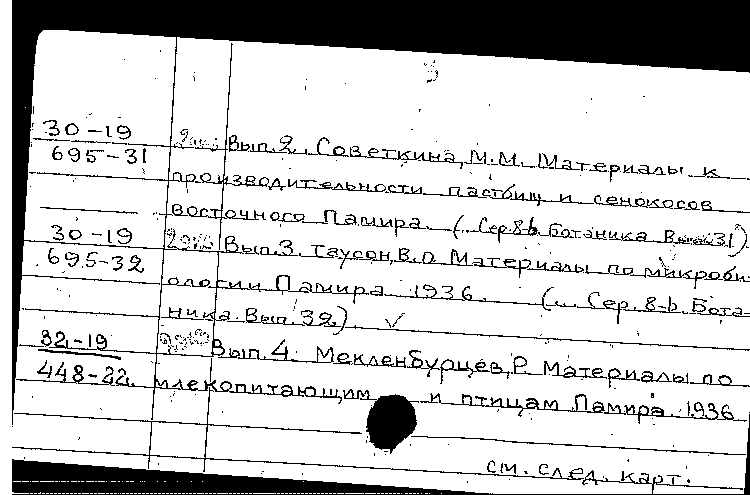 30-19
695-31
2экз Вып.2. Советкина, М.М. Материалы к
производительности пастбищ и сенокосов
восточного Памира. (.. Сер.8-b. Ботаника Вып.31)
30-19
695-32
2экз Вып.3. Таусон, В.О. Материалы по микроби-
ологии Памира 1936. (.. Сер. 8-b. Бота-
ника. Вып. 32).
32-19
448-22
Вып. 4. Мекленбурцев, Р. Материалы по
млекопитающим и птицам Памира. 1936
см. след. карт.